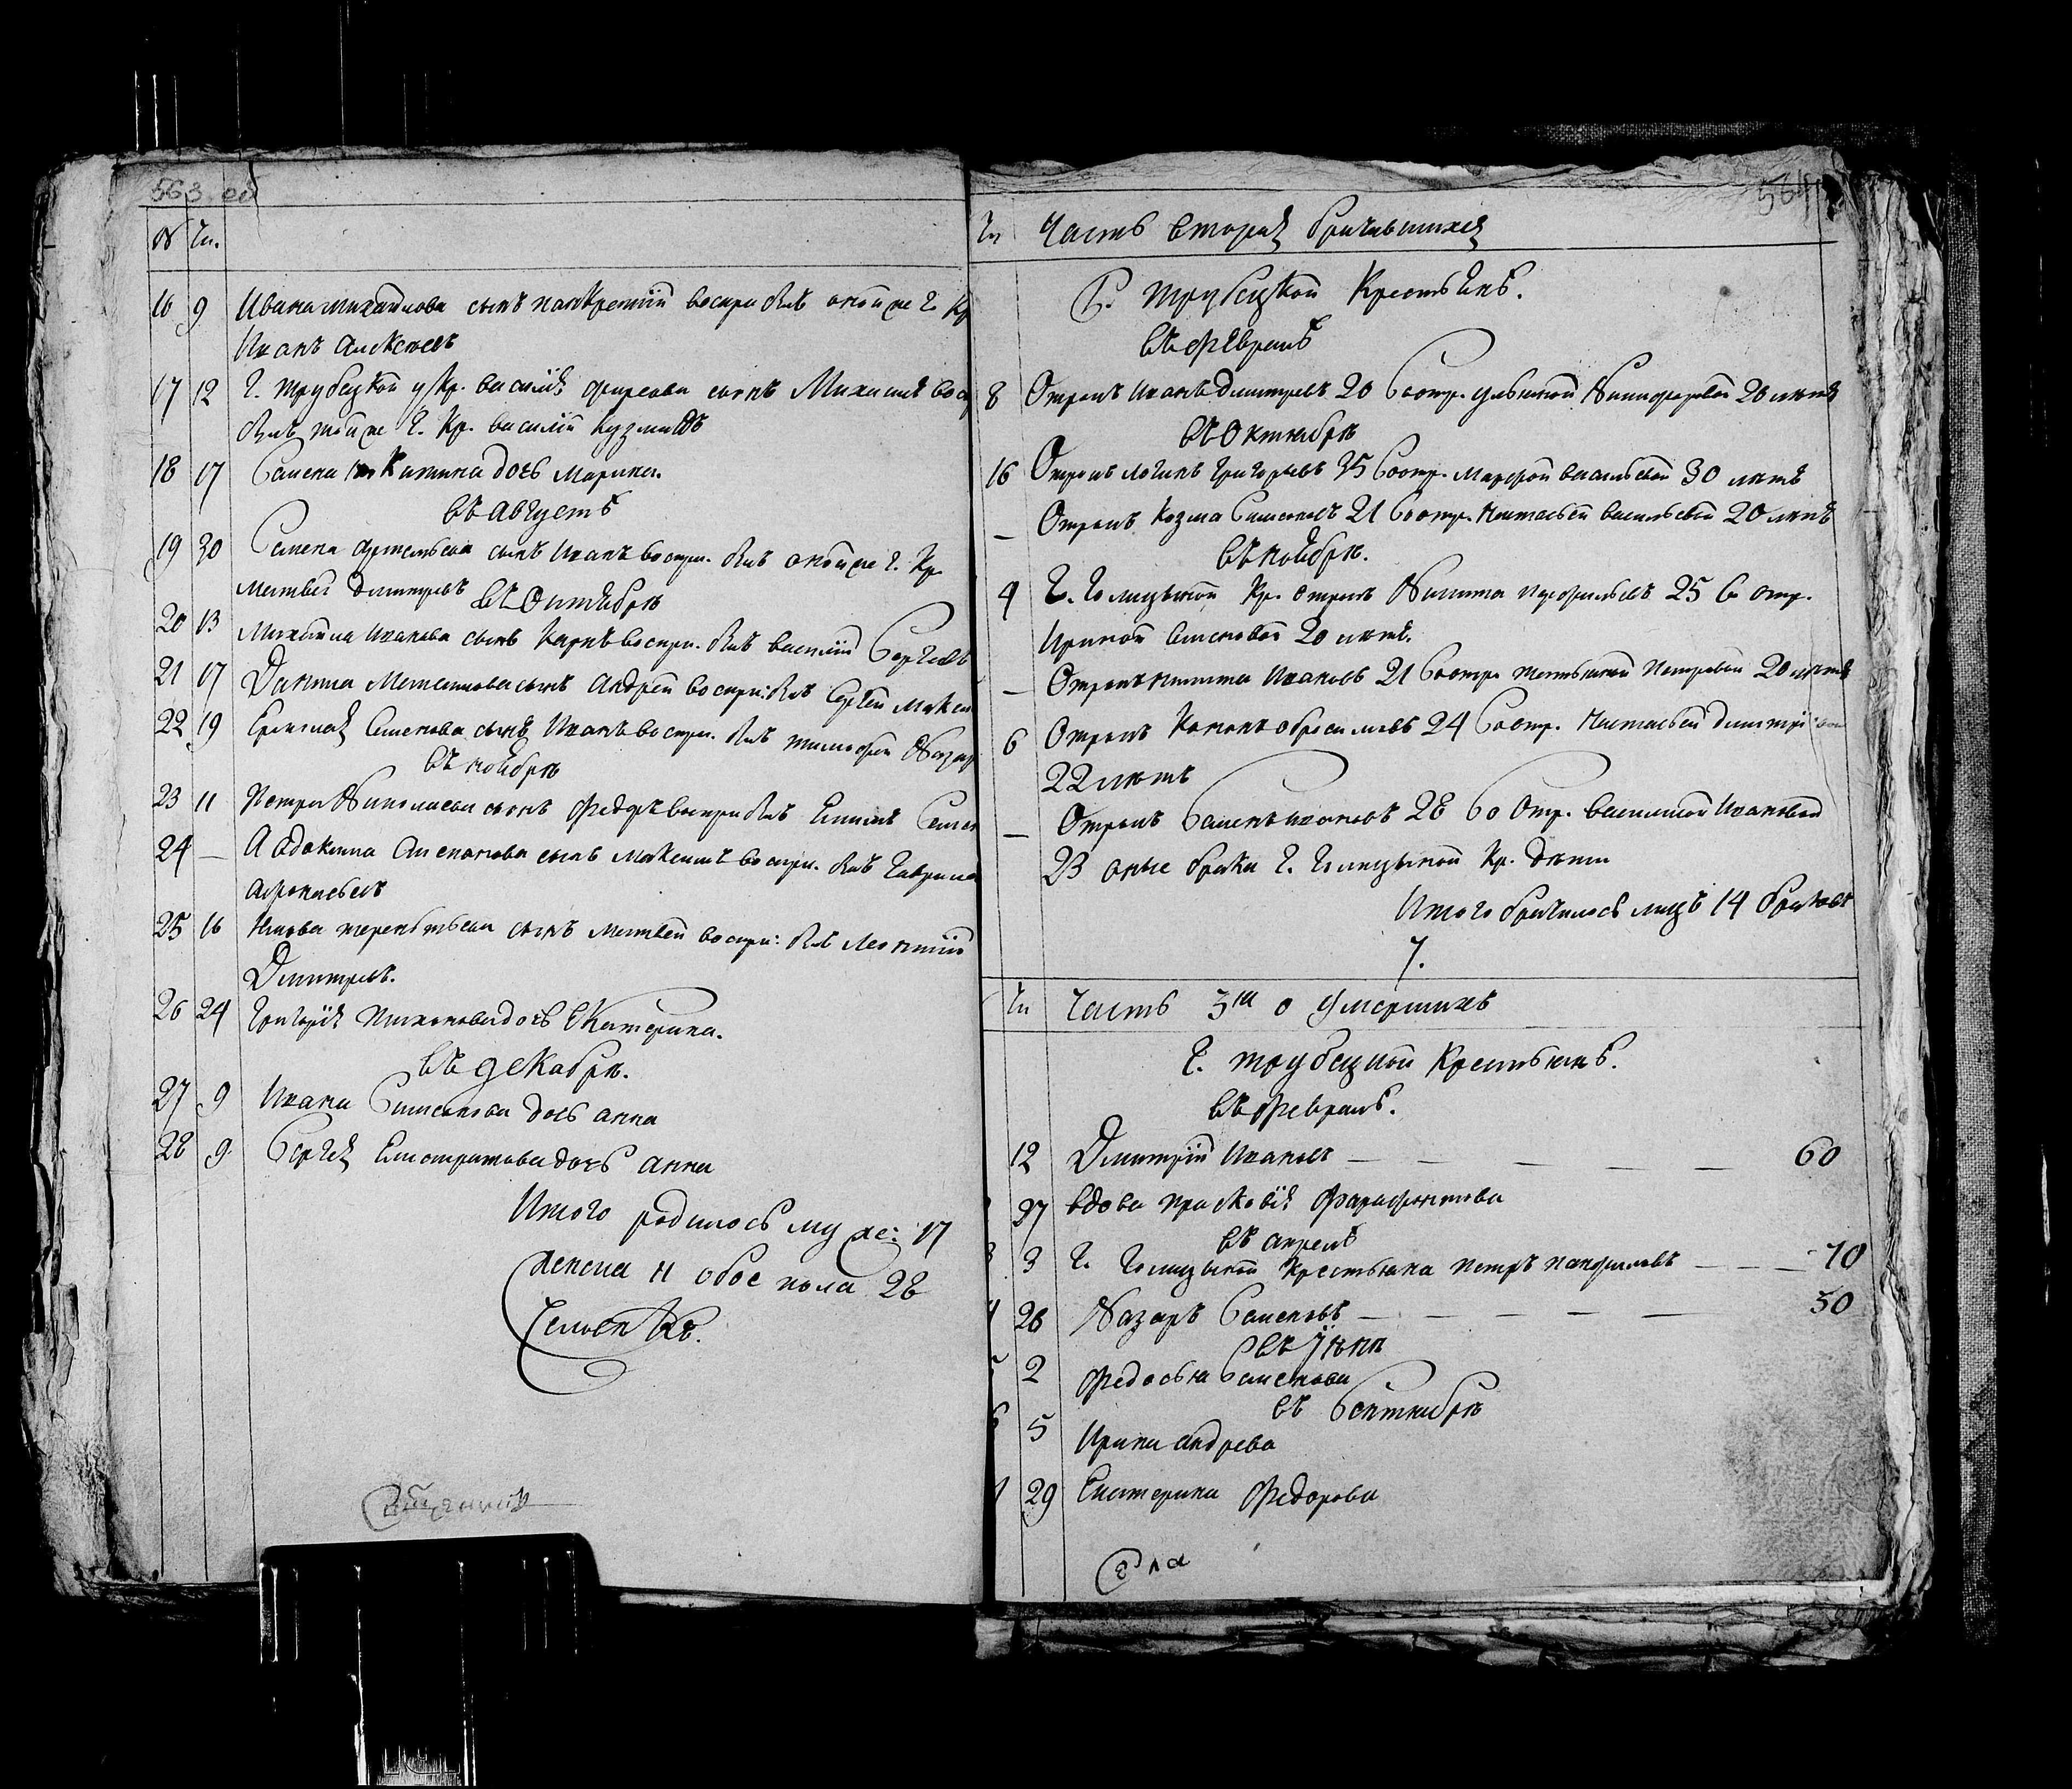 563 об
№ Чи.
16 9 Ивана Михаилова сынъ Панкретий воспри былъ оной же Г. Кр
Иванъ Алексеевъ
17 12 Г. Трубецкой у Кр. Василия Фирсова сынъ Михаилъ воспр
былъ той же Г. Кр. Василий Кузминъ
18 17 Самена Никитина дочь Марина.
въ августѣ
19 30 Семена Артемьева сынъ Иванъ воспри. былъ оной же Г. Кр.
Матвей Дмитревъ
въ Октябрѣ
20 13 Михаила Иванова сынъ Карпъ воспри. былъ Василий Сергеевъ
21 17 Данила сынъ Андрей воспри: былъ Сергей Макси
22 19 Ермолая Семенова сынъ Иванъ воспри. былъ Тимофей Назар
въ ноябрѣ
23 11 Петра Николаева сынъ Федоръ воспри былъ Семен
24 — Авдокима Степанова сынъ Максимъ воспри. былъ Гаврила
Афонасьевъ
25 16 Якова Терентьева сынъ Матвей воспри: былъ Леонтий
Дмитревъ.
26 24 Григорья дочь Екатерина.
въ декабрѣ.
27 9 Ивана Симионова дочь Анна
28 9 Сергея Елистратова дочь Анна
Итого родилось муже: 17
женска 11 обое пола 28
Человекъ.
564
Чи Часть вторая бричавшихся
Г. Трубецкой Крестьянъ.
въ Февралѣ
8 Отрокъ Иванъ Дмитревъ 20 Со отр. Ульяной Никифоровой 20 летъ
въ Октябрѣ
16 Отрокъ Логинъ Григорьевъ 35 Со отр. Марфой Васильевой 30 летъ
— Отрокъ Козма Симеоновъ 21 Со отр. Настасьей Васильевой 20 летъ
въ ноябрѣ.
4 Г. Голицыной Кр. отрокъ Никита Перфильевъ 25 Со отр.
Ириной Семеновой 20 летъ.
— Отрокъ Никита Ивановъ 21 Со отр. Татьяной Петровой 20 летъ
6 Отрокъ Кононъ Абросимовъ 24 Со отр. Настасьей Дмитриевой
22 летъ
— Отрокъ Саменъ Ивановъ 28 Со Отр. Василисой Ивановой
23 оные браки Г. Голицыной Кр. дети
Итого бричилось лицъ 14 браковъ
7.
Чи Часть 3я о Умершихъ
Г. Трубецкой Крестьянъ.
въ Февралѣ.
12 Дмитрий Ивановъ — — — — — 60
27 вдова Прасковия Фарафонтова
въ апрелѣ
3 3 Г. Голицыной Крестьяна Петръ Панфиловъ — — — 70
4 26 Назаръ Саменовъ — — — — — 50
въ Июнѣ
5 2 Федосья Саменова
въ Сентябрѣ
6 5 Ирина Андрева
7 29 Екатерина Федорова